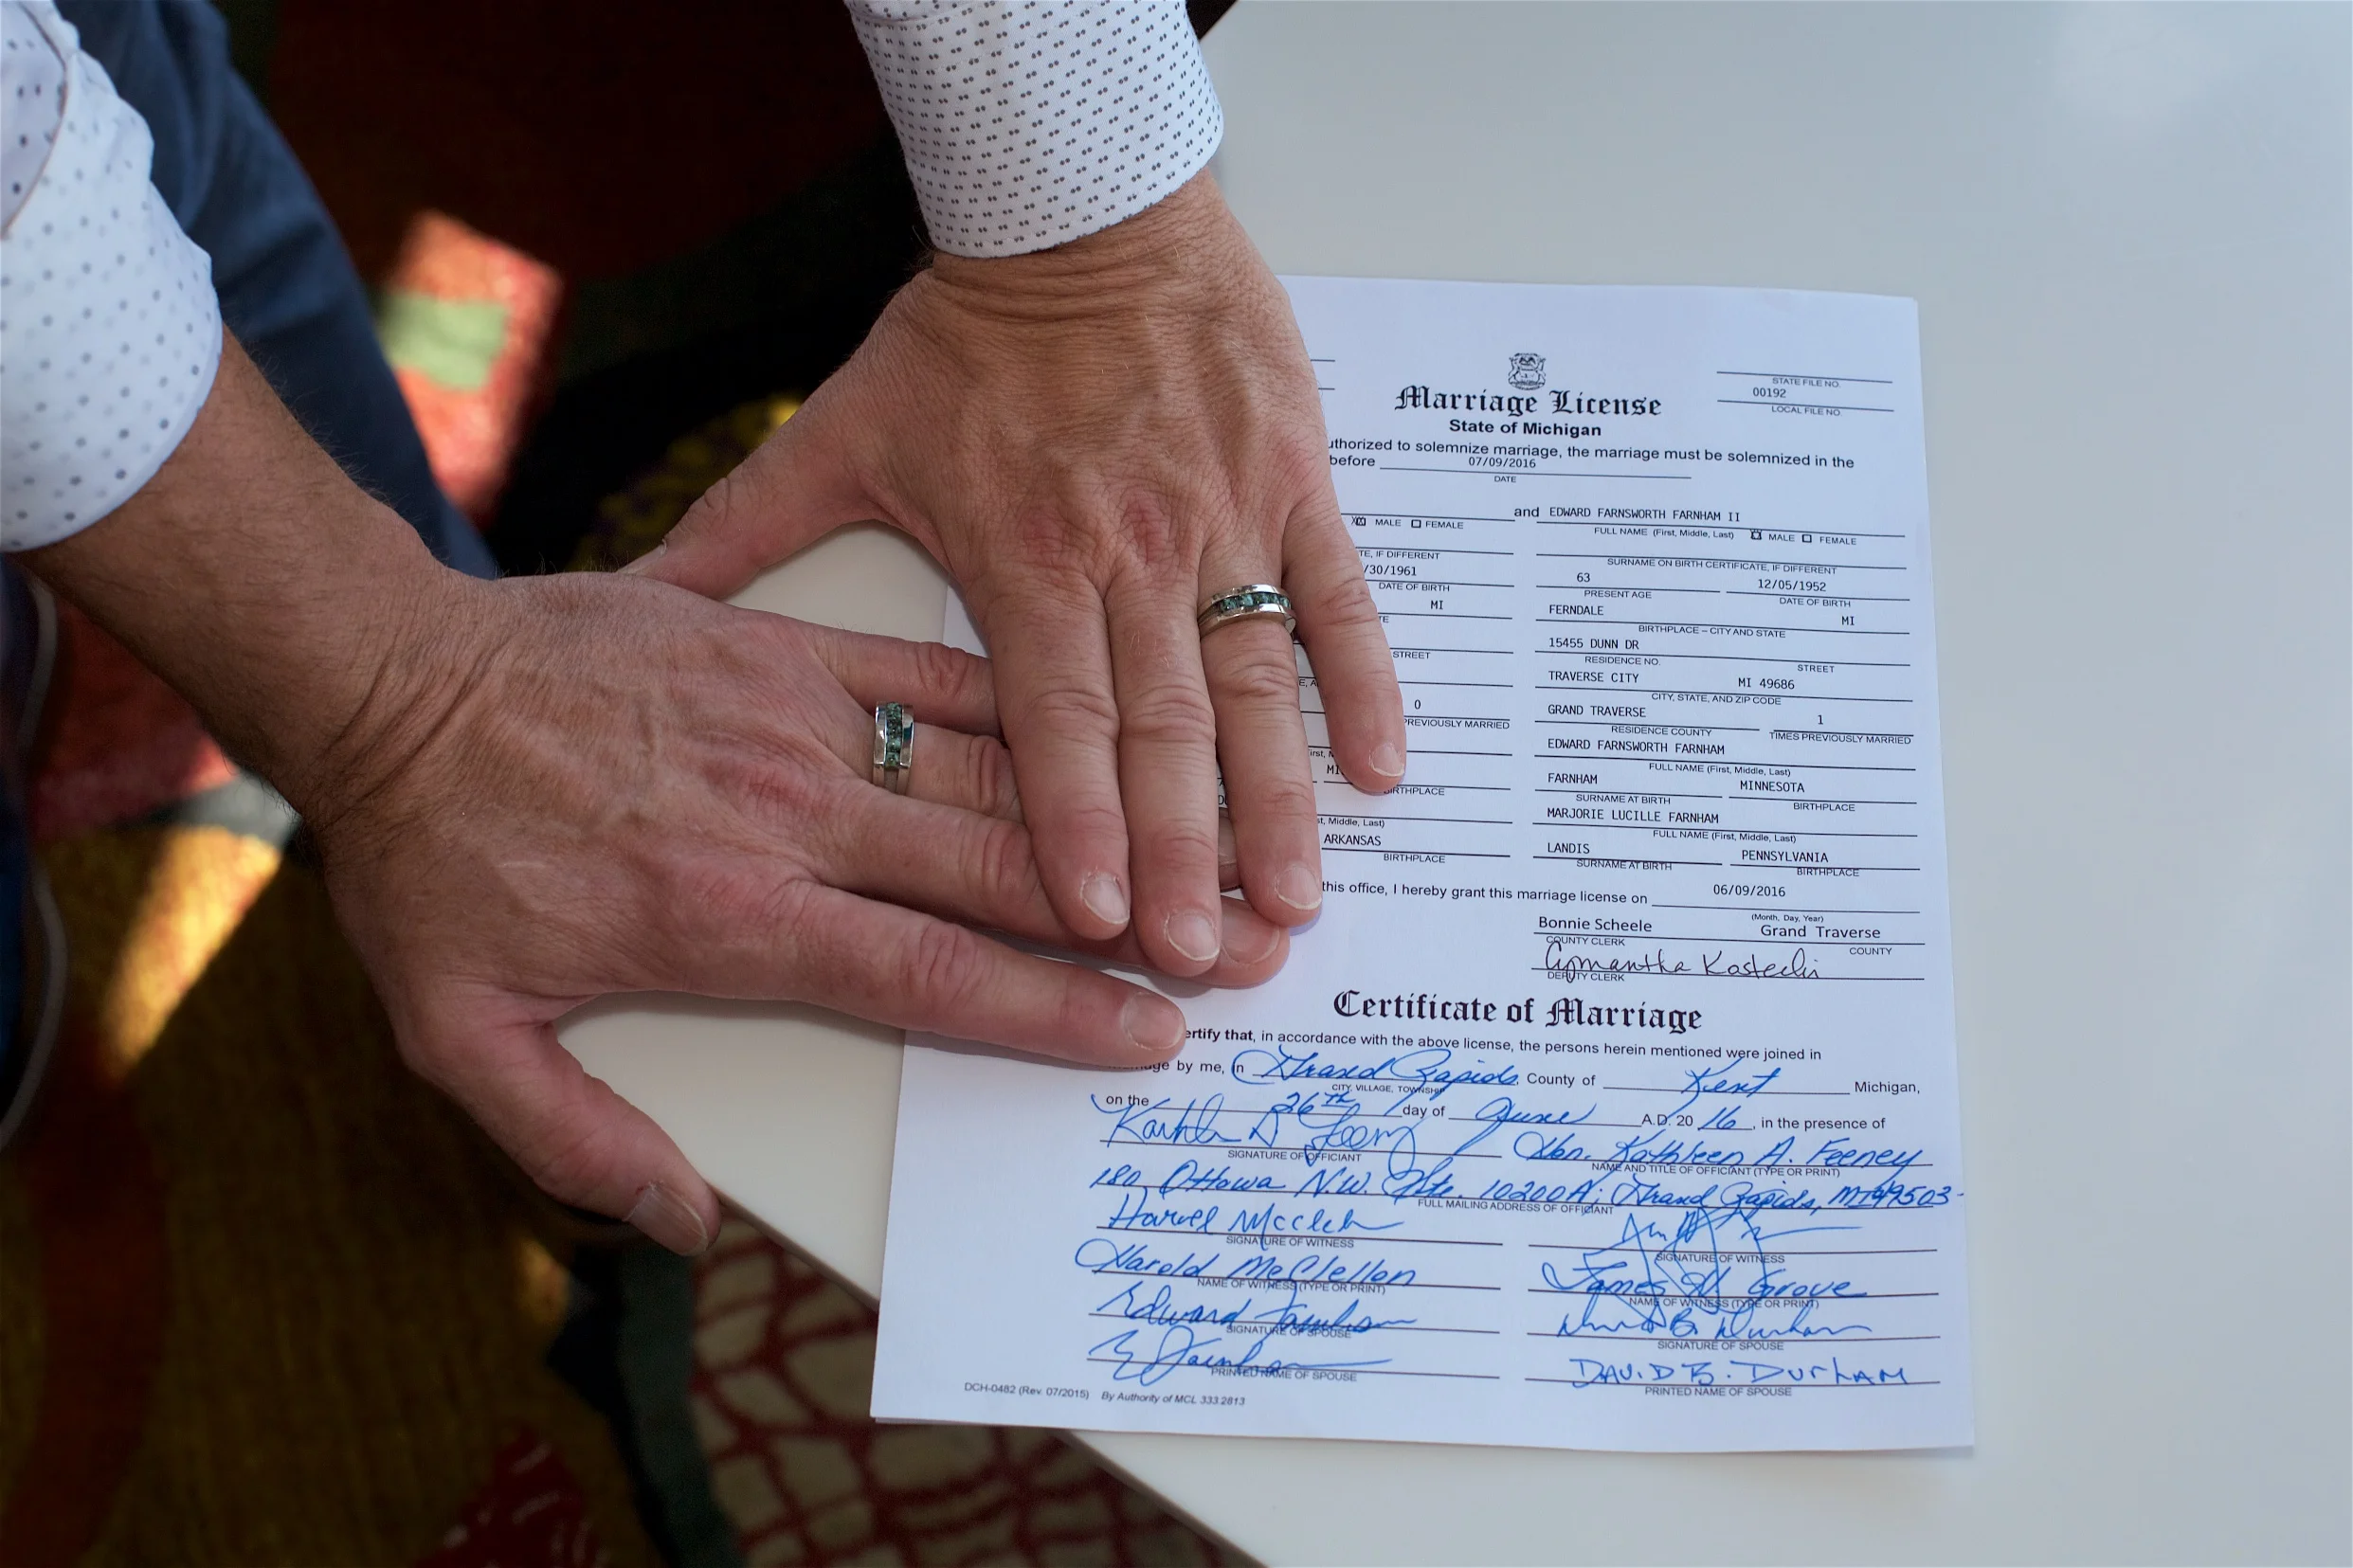 Marriage License
State of Michigan
STATE FILE NO.
00192
LOCAL FILE NO.
authorized to solemnize marriage, the marriage must be solemnized in the
before 07/09/2016
DATE
and EDWARD FARNSWORTH FARNHAM II
MALE FEMALE
FULL NAME (First, Middle, Last) MALE FEMALE
IF DIFFERENT
SURNAME ON BIRTH CERTIFICATE, IF DIFFERENT
/30/1961
63 12/05/1952
DATE OF BIRTH
PRESENT AGE DATE OF BIRTH
MI
FERNDALE MI
BIRTHPLACE – CITY AND STATE
15455 DUNN DR
STREET
RESIDENCE NO. STREET
TRAVERSE CITY MI 49686
CITY, STATE, AND ZIP CODE
0
GRAND TRAVERSE 1
PREVIOUSLY MARRIED
RESIDENCE COUNTY TIMES PREVIOUSLY MARRIED
EDWARD FARNSWORTH FARNHAM
FULL NAME (First, Middle, Last)
FARNHAM MINNESOTA
BIRTHPLACE
SURNAME AT BIRTH BIRTHPLACE
MARJORIE LUCILLE FARNHAM
Middle, Last)
FULL NAME (First, Middle, Last)
ARKANSAS
LANDIS PENNSYLVANIA
BIRTHPLACE
SURNAME AT BIRTH BIRTHPLACE
this office, I hereby grant this marriage license on 06/09/2016
(Month, Day, Year)
Bonnie Scheele Grand Traverse
COUNTY CLERK COUNTY
DEPUTY CLERK
Certificate of Marriage
certify that, in accordance with the above license, the persons herein mentioned were joined in
by me, in Grand Rapids, County of Kent Michigan,
CITY, VILLAGE, TOWNSHIP
on the 26th day of June A.D. 20 16, in the presence of
Hon. Kathleen A. Feeney
SIGNATURE OF OFFICIANT NAME AND TITLE OF OFFICIANT (TYPE OR PRINT)
180 Ottawa N.W. Ste. 10200A; Grand Rapids, MI 49503
FULL MAILING ADDRESS OF OFFICIANT
SIGNATURE OF WITNESS SIGNATURE OF WITNESS
Harold McClellon James Grove
NAME OF WITNESS (TYPE OR PRINT) NAME OF WITNESS (TYPE OR PRINT)
Edward Farnham David B. Durham
SIGNATURE OF SPOUSE SIGNATURE OF SPOUSE
E Farnham DAVID B. DURHAM
PRINTED NAME OF SPOUSE PRINTED NAME OF SPOUSE
DCH-0482 (Rev. 07/2015) By Authority of MCL 333.2813